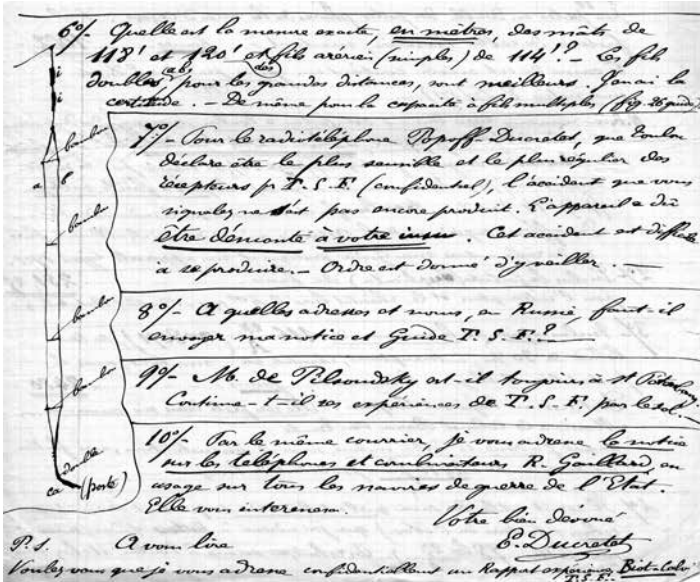 6°/- Quelle est la mesure exacte, en mètres, des mâts de
118' et 120' et fils aérien (simples) de 114'? - Les fils
doubles, a b, pour les grandes distances, sont meilleurs. J'en ai la
certitude. - De même pour la capacité à fils multiples (fig. 26 guide)
7°/- Pour le radiotéléphone Popoff-Ducretet, que Toulon
déclare être le plus sensible et le plus régulier des
récepteurs pr T.S.F. (confidentiel), l'accident que vous
signalez ne s'est pas encore produit. L'appareil a dû
être démonté à votre insu. Cet accident est difficile
à se produire. - Ordre est donné d'y veiller. -
8°/- A quelles adresses et noms, en Russie, faut-il
envoyer ma notice et Guide T.S.F.?
9°/- M. de Pilsoudsky est-il toujours à St Pétersbourg
Continue-t-il ses expériences de T.S.F. par le sol.-
10°/- Par le même courrier, je vous adresse la notice
sur les téléphones et combinateurs R. Gaillard, en
usage sur tous les navires de guerre de l'Etat.
Elle vous intéressera.
Votre bien dévoué
E. Ducretet
P.S. A vous lire
Voulez vous que je vous adresse confidentiellement un Rapport expériences Biot-Calvi
T.S.F.-
i
i
bambou
a b
bambou
bambou
bambou
double
ca (poste)